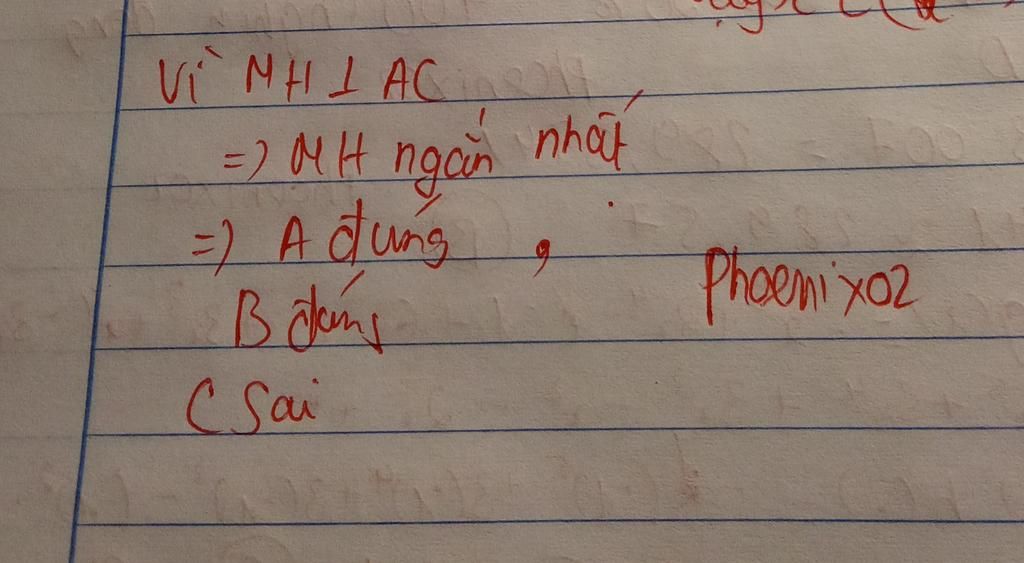 Vì MH ⊥ AC
=) MH ngắn nhất
=) A đúng ,
Phoenix02
B đúng
C Sai